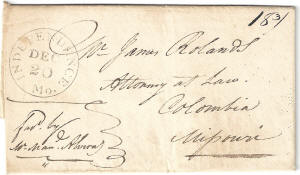 18¾
INDEPENDENCE
DEC
20
Mo.
Mr James Rolands
Attorney at Law
Colombia
Missouri
by
Mr